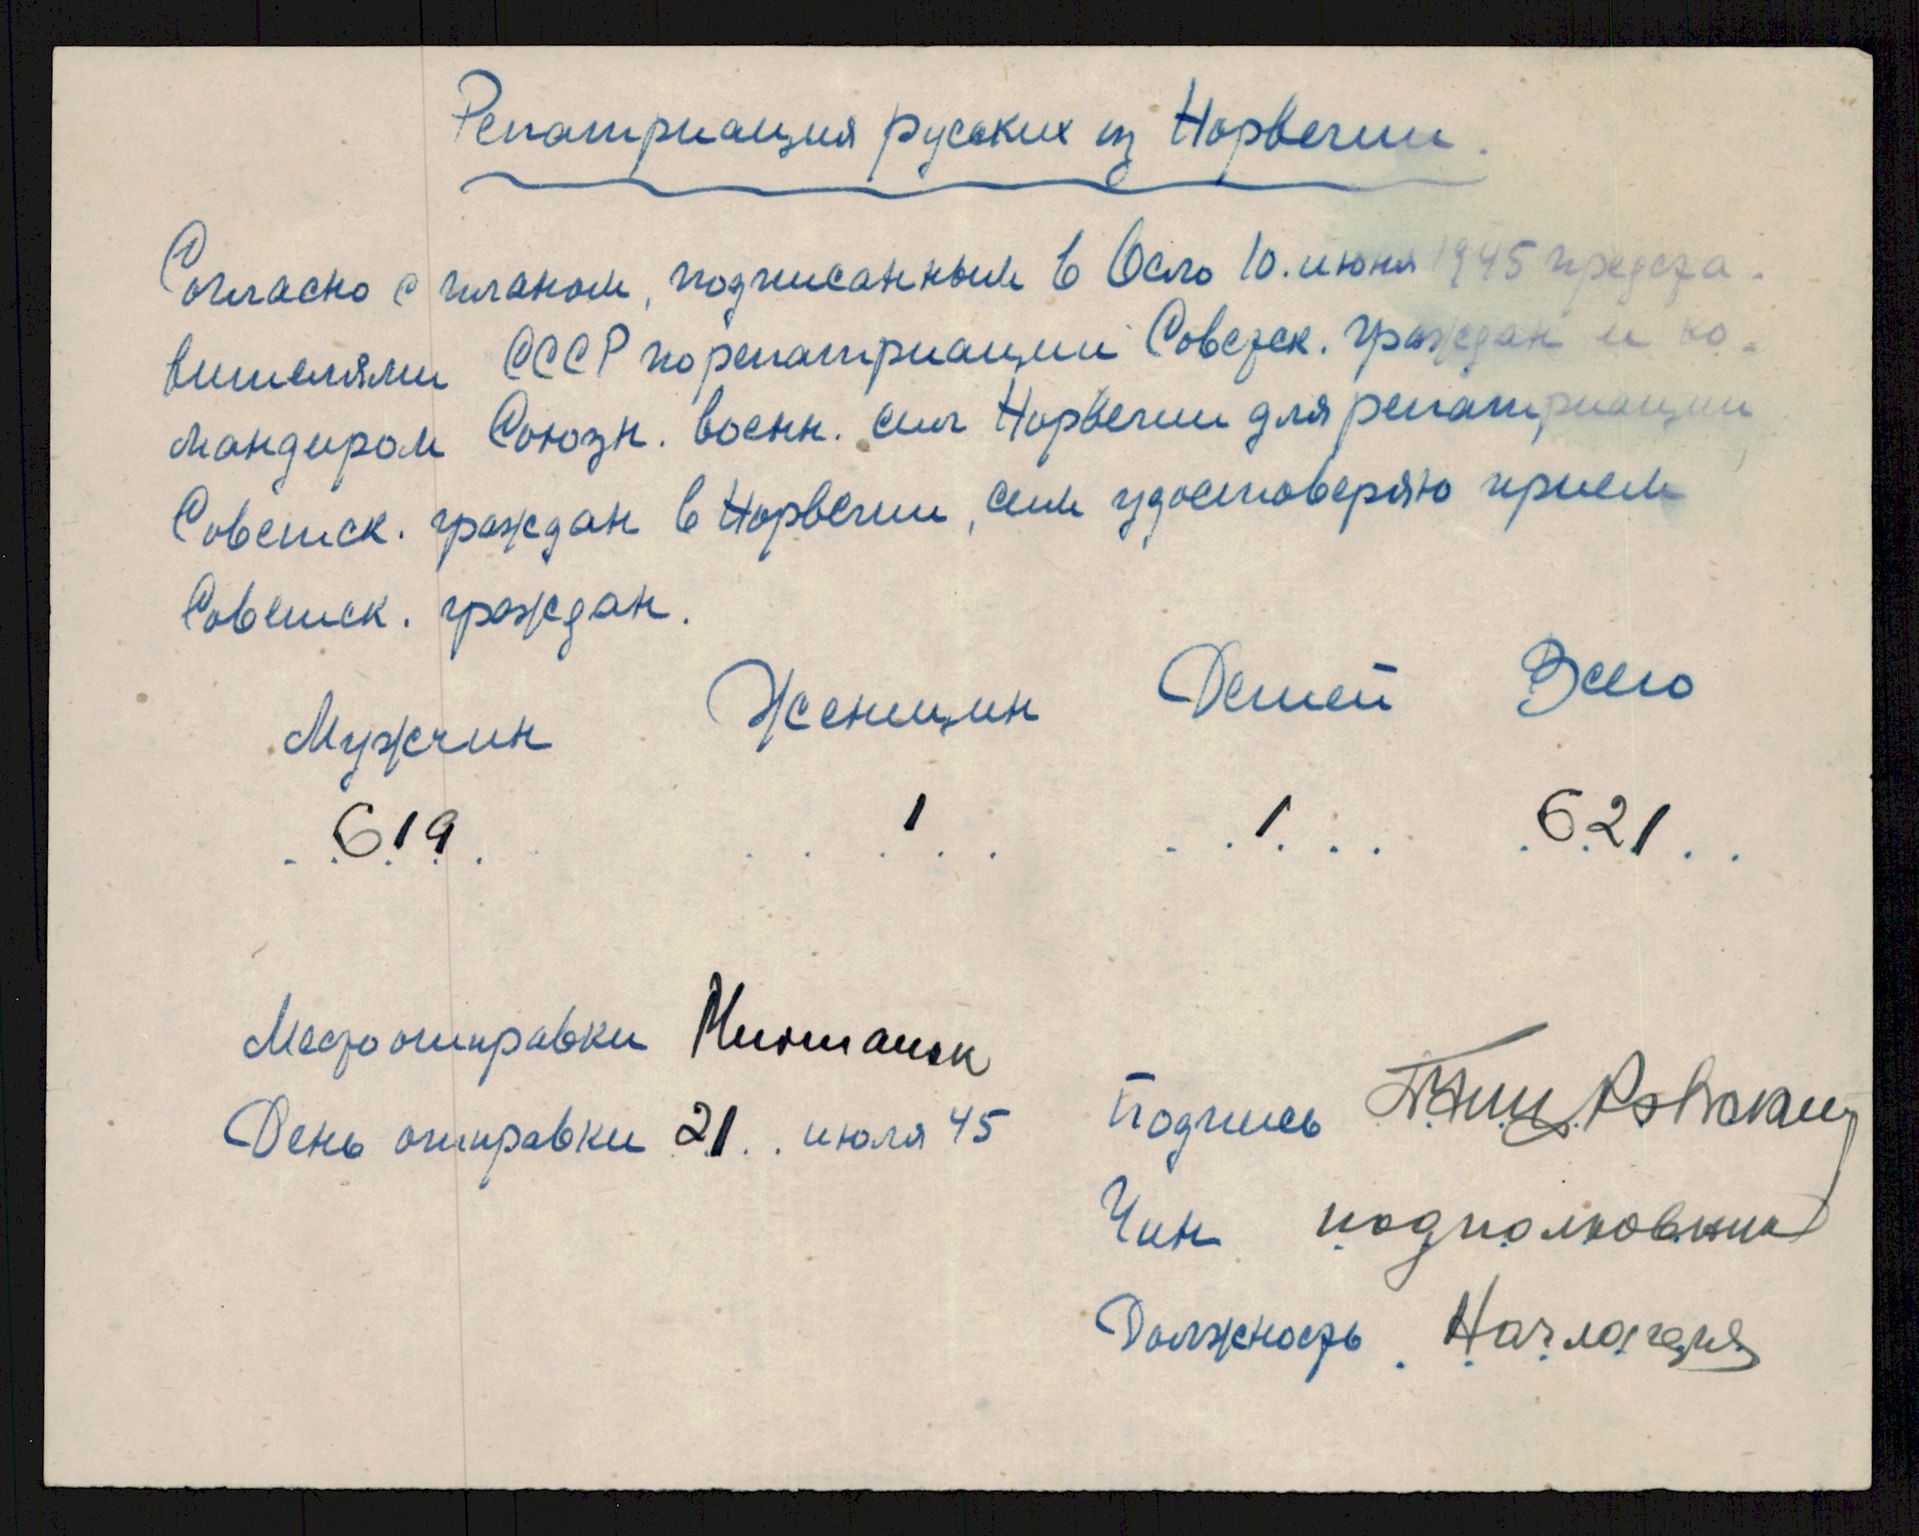 Репатриация русских из Норвегии.
Согласно с планом, подписанным в Осло 10. июня 1945 предста-
вителями СССР по репатриации Советск. граждан и ко-
мандиром Союзн. военн. сил Норвегии для репатриации
Советск. граждан в Норвегии, сим удостоверяю прием
Советск. граждан.
Мужчин Женщин Детей Всего
619 1 1 621
Место отправки
День отправки 21 июля 45
Подпись
Чин подполковник
Должность Нач лагеря